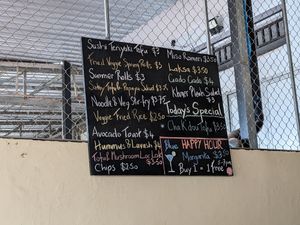 Sushi Teriyaki Tofu $3
Fried Veggie Spring Rolls $3
Summer Rolls $3
Noodl & Veg Stir fry
Veggie Fried Rice $2.50
Avocado Toast $4
Hummus & Lavash $4
Tofu & Mushroom Lok Lak $3.50
Chips $2.50
Miso Ramen $3.50
Laksa $3.50
Gado Gado $4
Khmer Salad $3
Today's Special
Cha Kdau Tofu $3.50
Blue HAPPY HOUR
Margarita $3.50
Buy 1 = 1 free